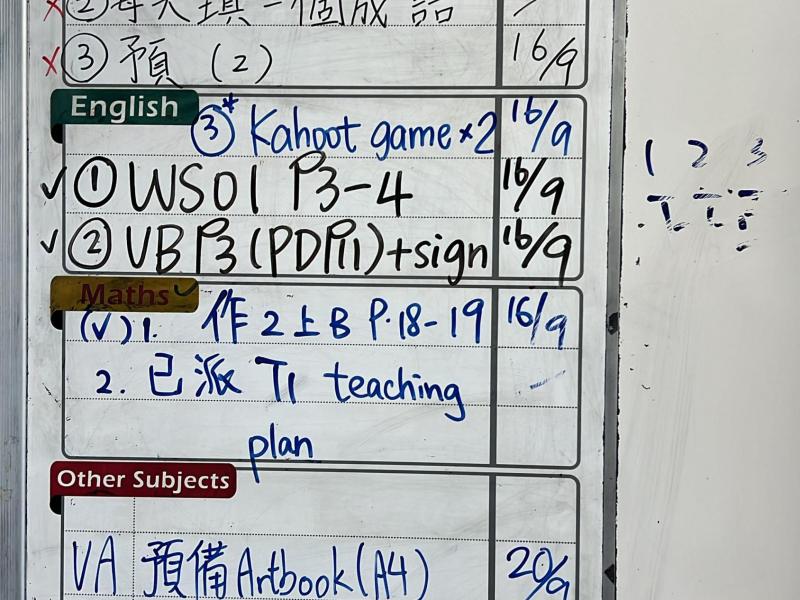 ② 每天填一個成語
x ③ 預 (2) 16/9
English
③* Kahoot game×2 16/9
✓ ① WS01 P3-4 16/9
✓ ② VB P3(PDP11)+sign 16/9
Maths ✓
(✓) 1. 作2上B P.18-19 16/9
2. 已派 T1 teaching —
plan
Other Subjects
VA 預備Artbook(A4) 20/9
1 2 3